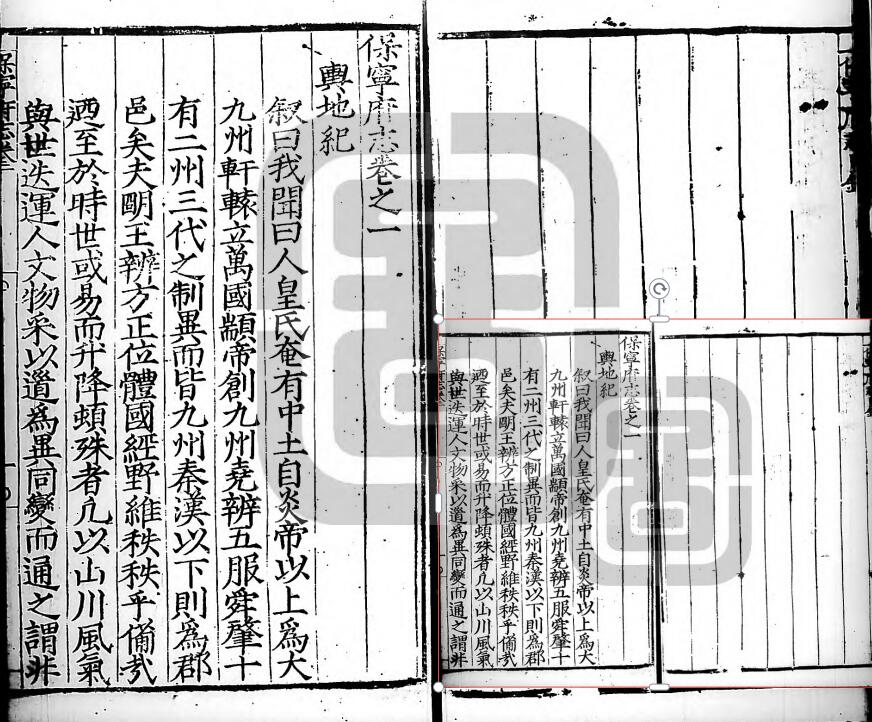 保寧府志卷之一
輿地紀
叙曰我聞曰人皇氏奄有中土自炎帝以上爲大
九州軒轅立萬國顓帝創九州堯辨五服舜肇十
有二州三代之制異而皆九州秦漢以下則爲郡
邑矣夫明王辨方正位體國經野維秩秩乎備哉
迺至於時世或易而升降頓殊者凢以山川風氣
與世迭運人文物采以爲異同變而通之謂非
保寧府志卷之一
輿地紀
叙曰我聞曰人皇氏奄有中土自炎帝以上爲大
九州軒轅立萬國顓帝創九州堯辨五服舜肇十
有二州三代之制異而皆九州秦漢以下則爲郡
邑矣夫明王辨方正位體國經野維秩秩乎備哉
迺至於時世或易而升降頓殊者凢以山川風氣
與世迭運人文物采以爲異同變而通之謂非